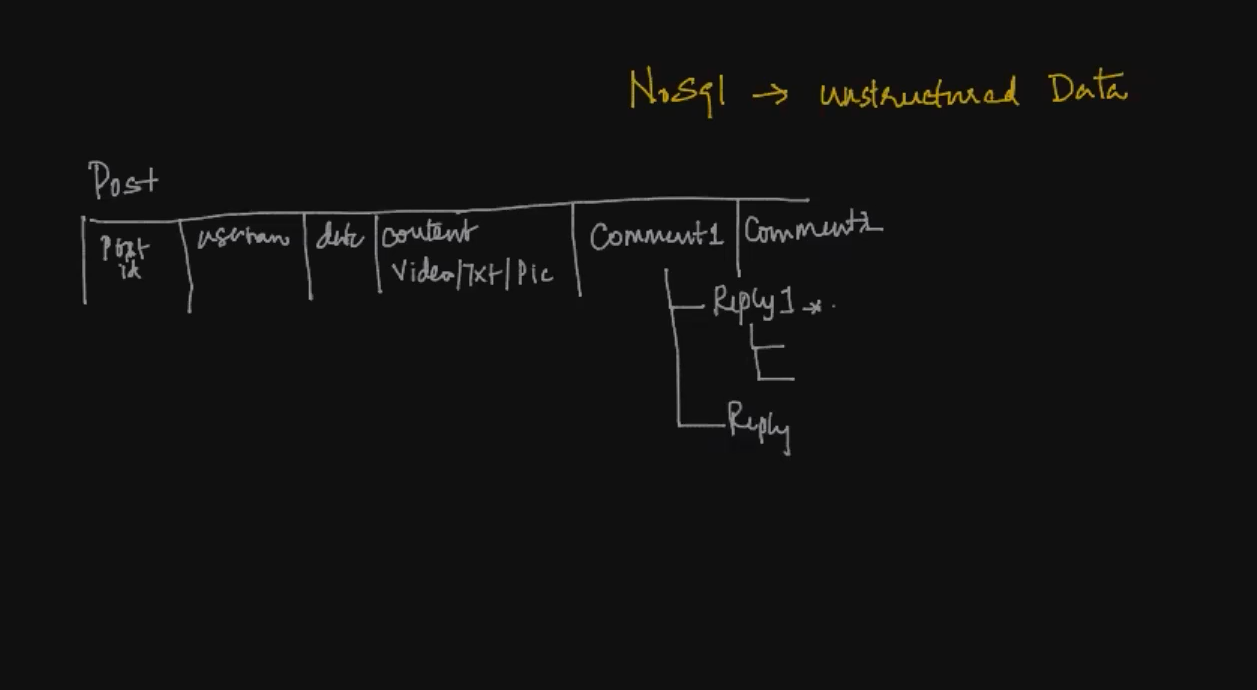 NoSql → unstructured Data
Post
Post id
usernam
date
content
Video/Txt/Pic
Comment1
Comment2
Reply1 →
Reply